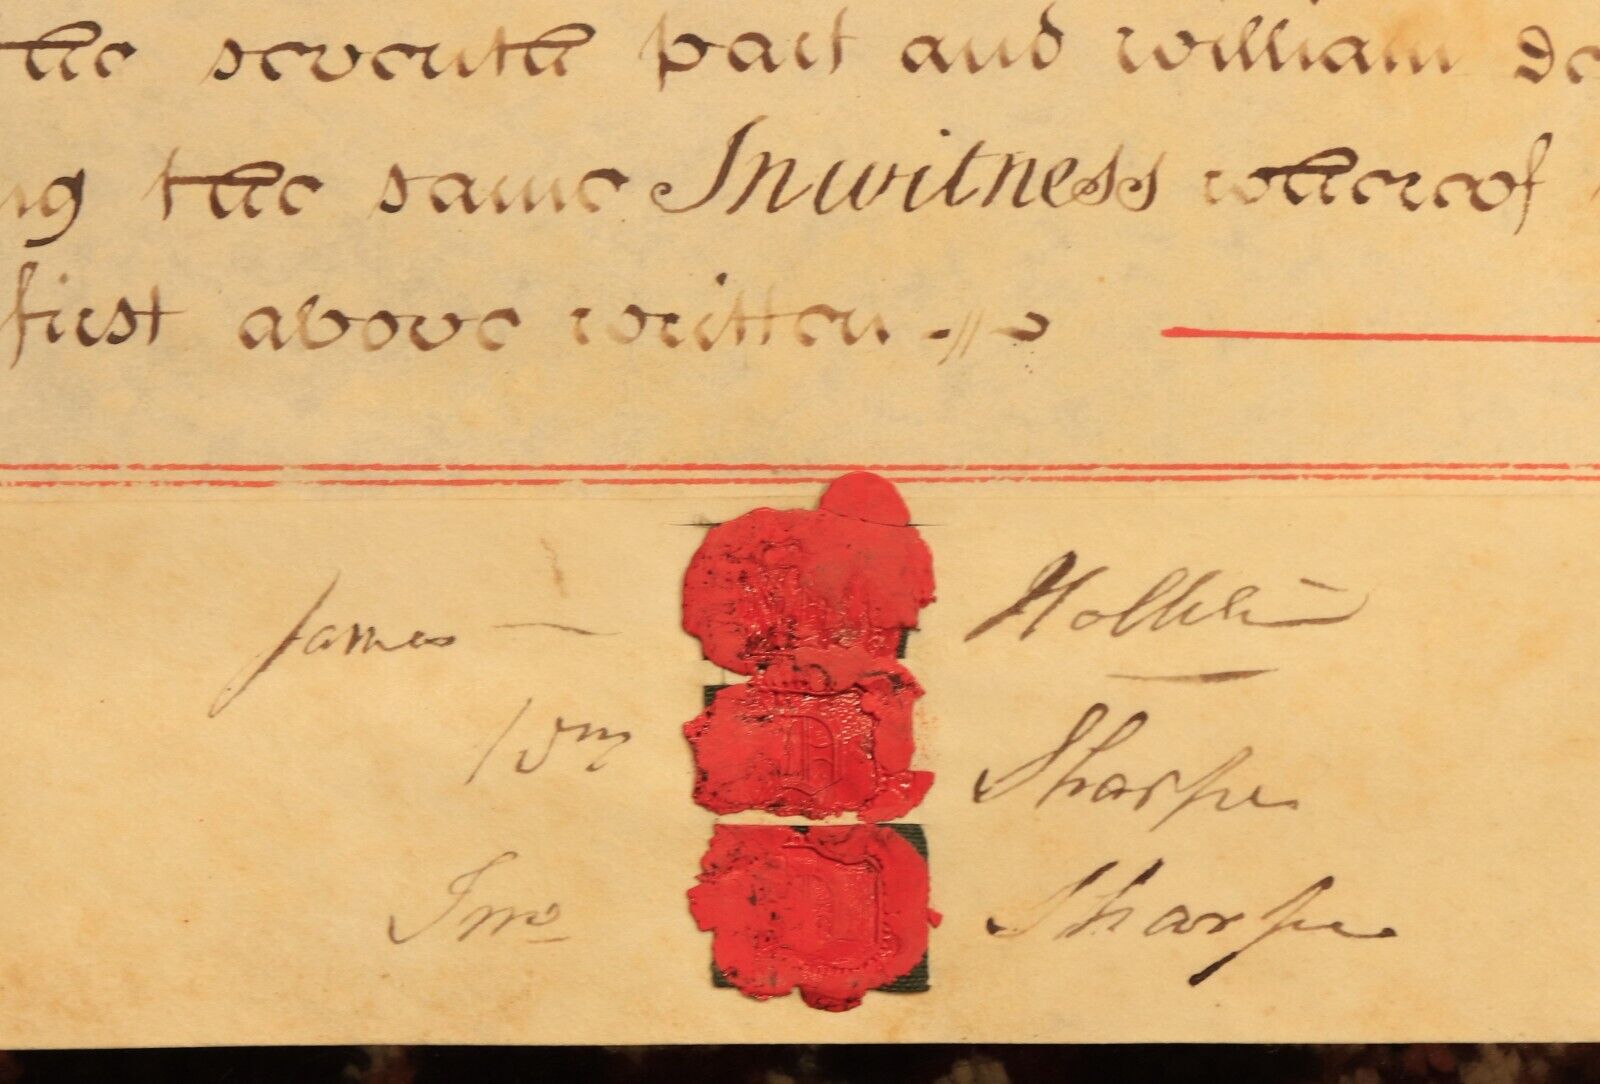 the seventh part and william de
ng the same In witness whereof
first above written
James Hollili
Wm Sharpe
Jno Sharpe
D